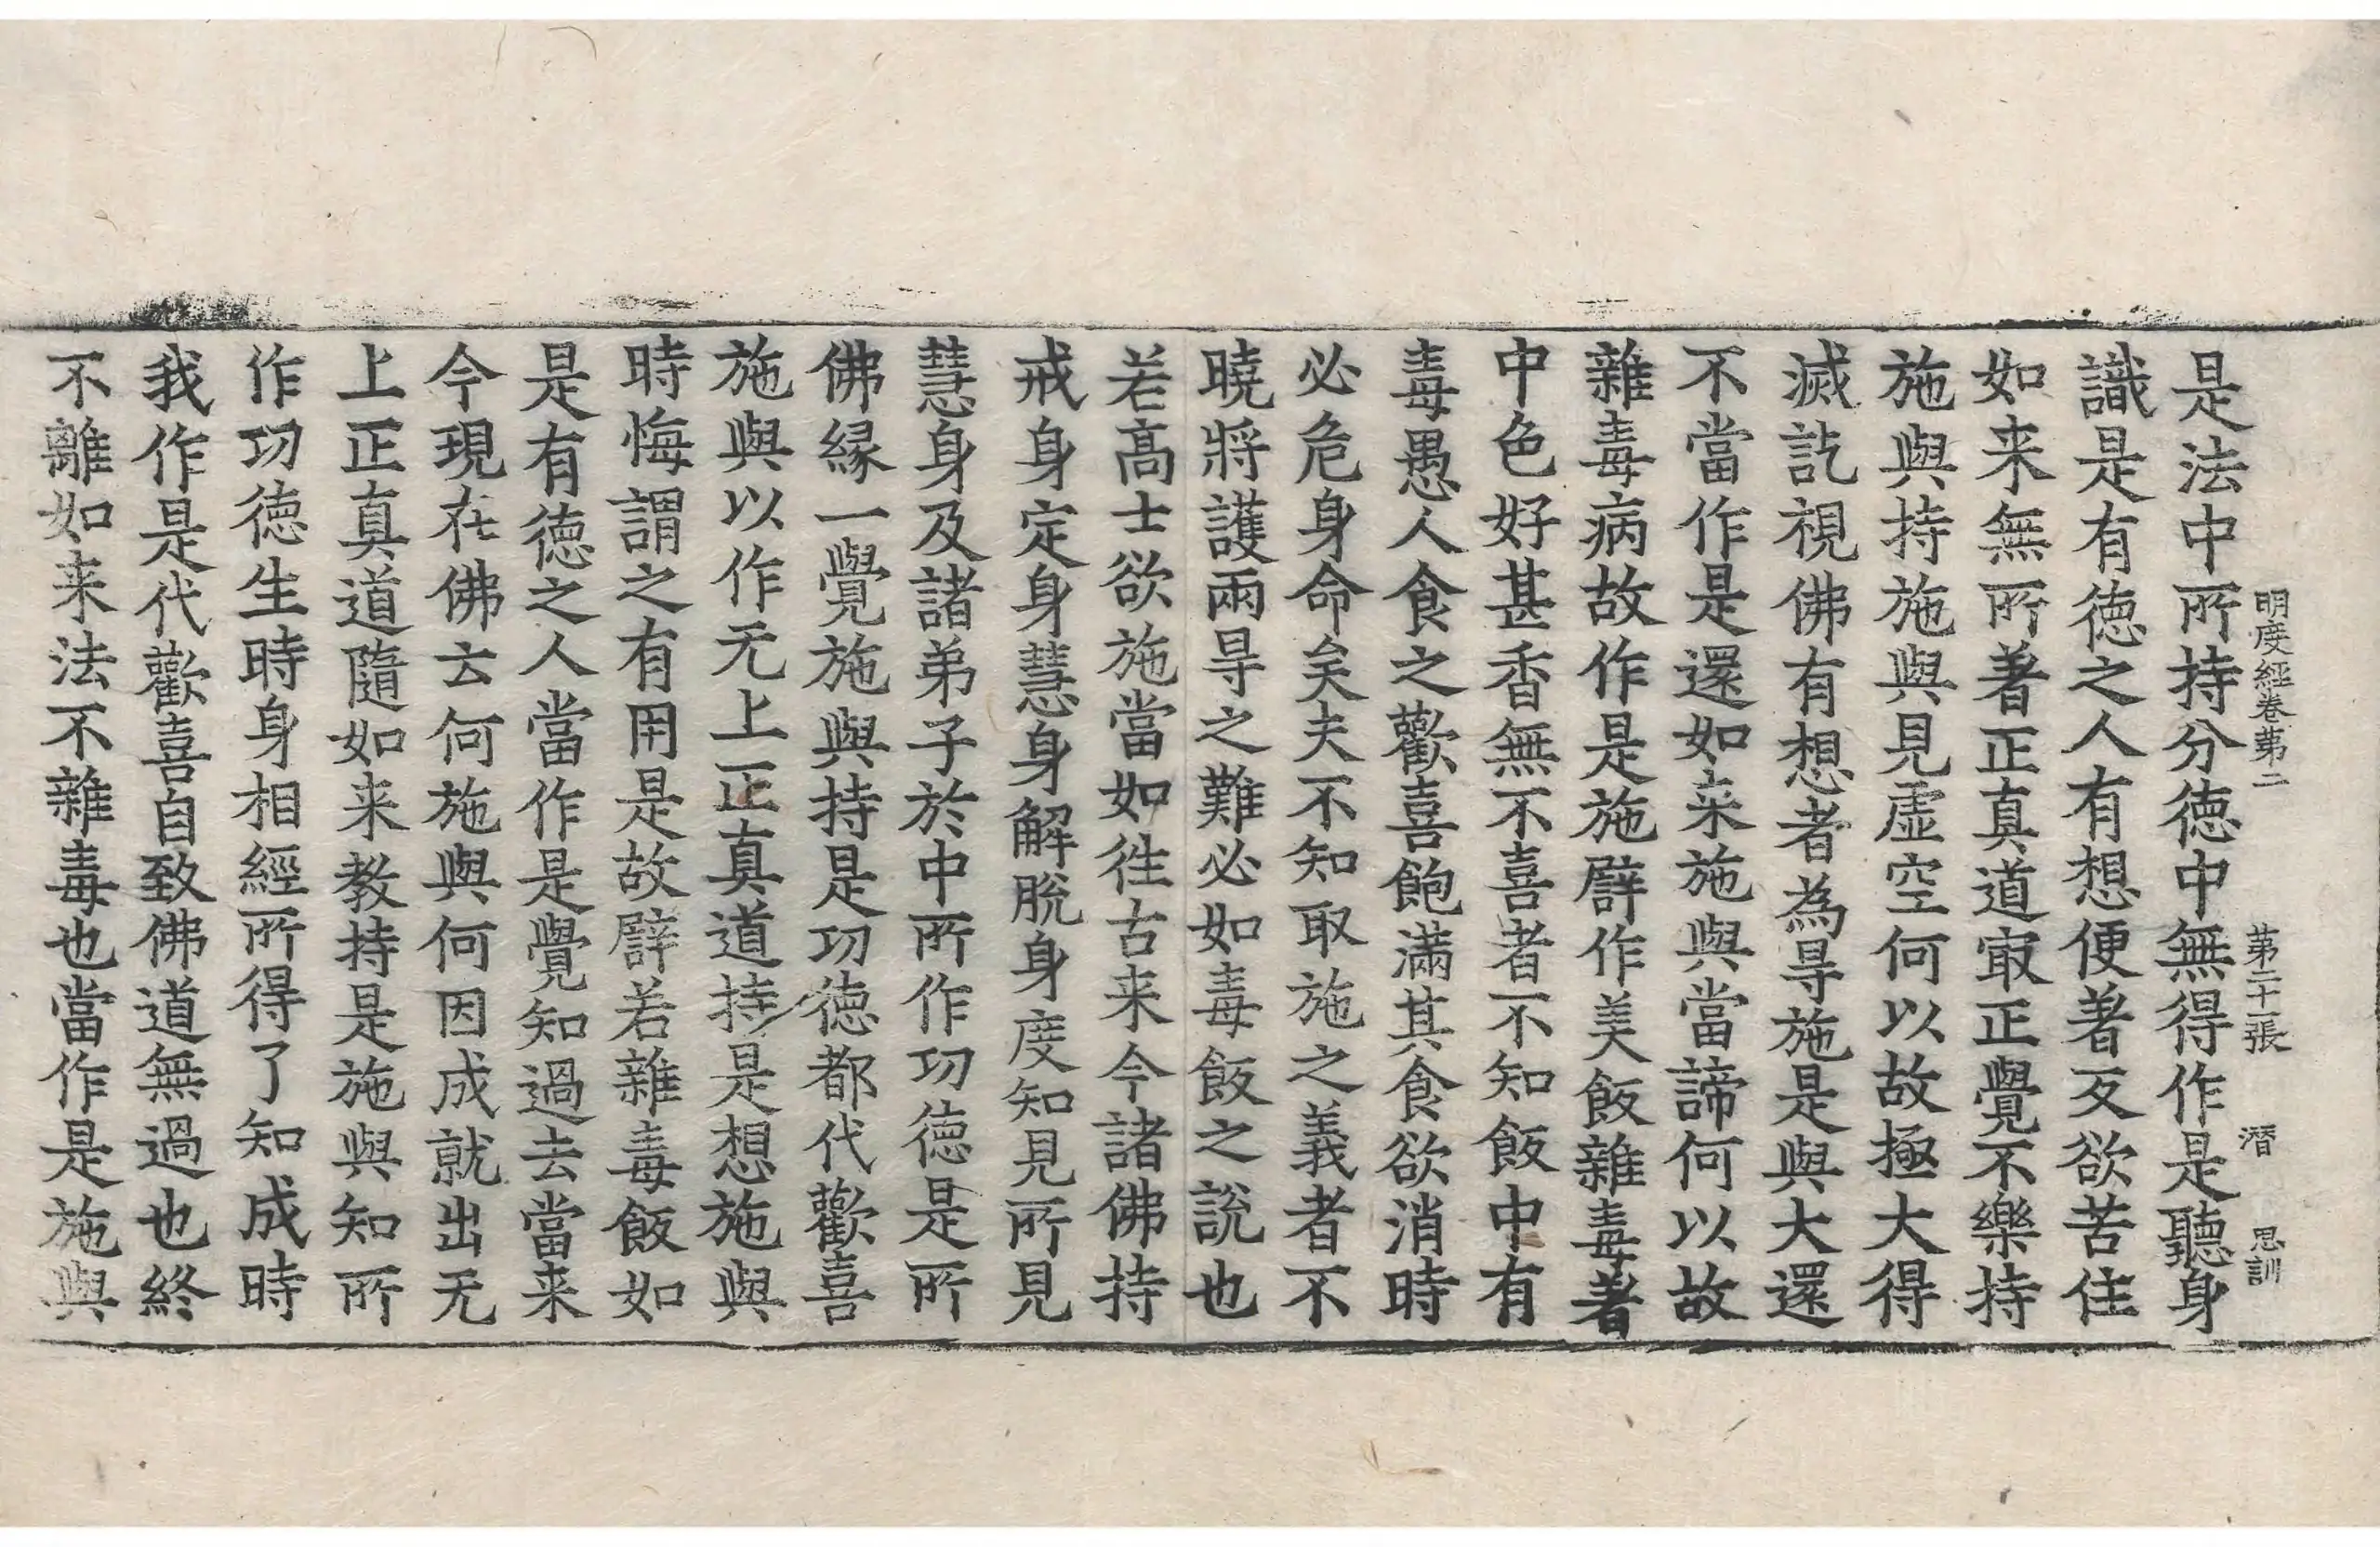 明度經卷第二 第二十一張 潛 思訓
是法中所持分德中無得作是聽身
識是有德之人有想便著反欲苦住
如来無所著正真道㝡正覺不樂持
施與持施與見虛空何以故極大得
滅訖視佛有想者為㝵施是與大還
不當作是還如来施與當諦何以故
雜毒病故作是施譬作美飯雜毒著
中色好甚香無不喜者不知飯中有
毒愚人食之歡喜飽滿其食欲消時
必危身命矣夫不知取施之義者不
曉將護兩㝵之難必如毒飯之說也
若高士欲施當如徃古来今諸佛持
戒身定身慧身解脫身度知見所見
慧身及諸弟子於中所作功德是所
佛緣一覺施與持是功德都代歡喜
施與以作无上正真道持是想施與
時悔謂之有用是故譬若雜毒飯如
是有德之人當作是覺知過去當来
今現在佛云何施與何因成就出无
上正真道隨如来教持是施與知所
作功德生時身相經所得了知成時
我作是代歡喜自致佛道無過也終
不離如来法不雜毒也當作是施與